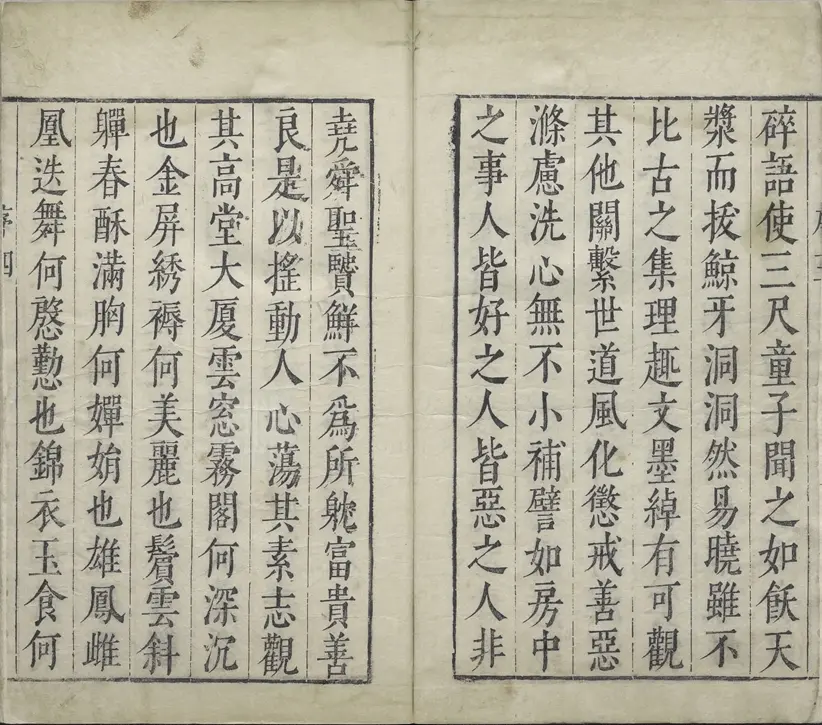 碎語使三尺童子聞之如飫天
漿而拔鯨牙洞洞然易曉雖不
比古之集理趣文墨綽有可觀
其他關繫世道風化懲戒善惡
滌慮洗心無不小補譬如房中
之事人皆好之人皆惡之人非
堯舜聖賢鮮不爲所躭富貴善
良是以搖動人心蕩其素志觀
其高堂大厦雲窓霧閣何深沉
也金屏綉褥何美麗也鬢雲斜
軃春酥滿胸何嬋娟也雄鳳雌
凰迭舞何慇懃也錦衣玉食何
序四